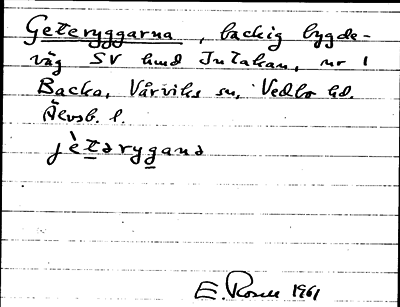 Geteryggarna, backig bygde-
väg SV hund Intakan, nr 1
Backa, Vårviks sn, Vedbo hd.
Älvsb. l.
jètərygana
E. Rosell 1961